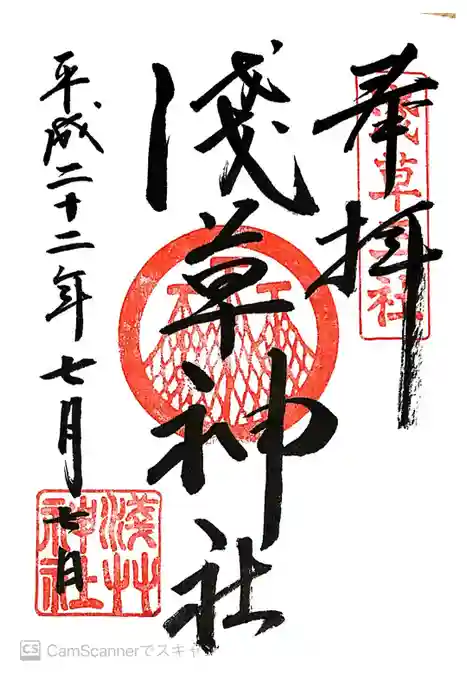 奉拝
浅草三社
淺草神社
平成二十二年七月七日
淺草神社
CS CamScannerでスキャ